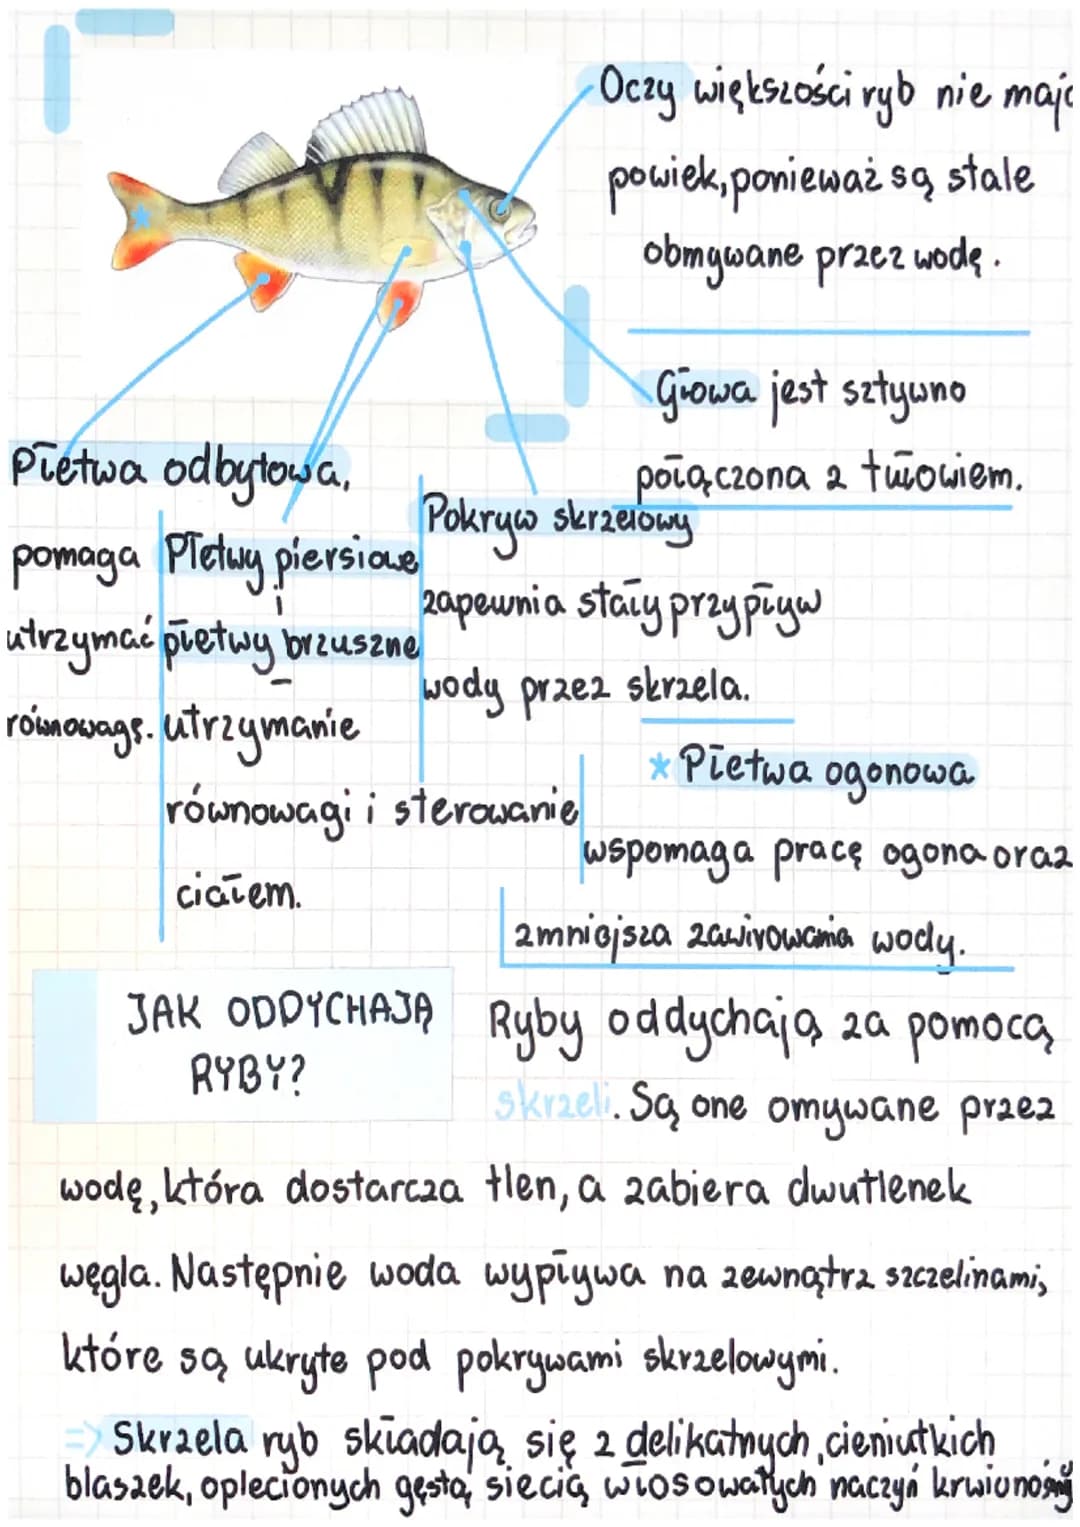 Oczy większości ryb nie mają
powiek, ponieważ są stale
obmywane przez wodę.
Głowa jest sztywno
połączona z tułowiem.
Płetwa odbytowa,
pomaga
utrzymać
równowagę.
Płetwy piersiowe
i
płetwy brzuszne
-
utrzymanie
równowagi i sterowanie
ciałem.
Pokryw skrzelowy
zapewnia stały przypływ
wody przez skrzela.
* Płetwa ogonowa
wspomaga pracę ogona oraz
zmniejsza zawirowania wody.
JAK ODDYCHAJĄ
RYBY?
Ryby oddychają za pomocą
skrzeli. Są one omywane przez
wodę, która dostarcza tlen, a zabiera dwutlenek
węgla. Następnie woda wypływa na zewnątrz szczelinami,
które są ukryte pod pokrywami skrzelowymi.
=> Skrzela ryb składają się z delikatnych, cieniutkich
blaszek, oplecionych gęstą siecią włosowatych naczyń krwionośny